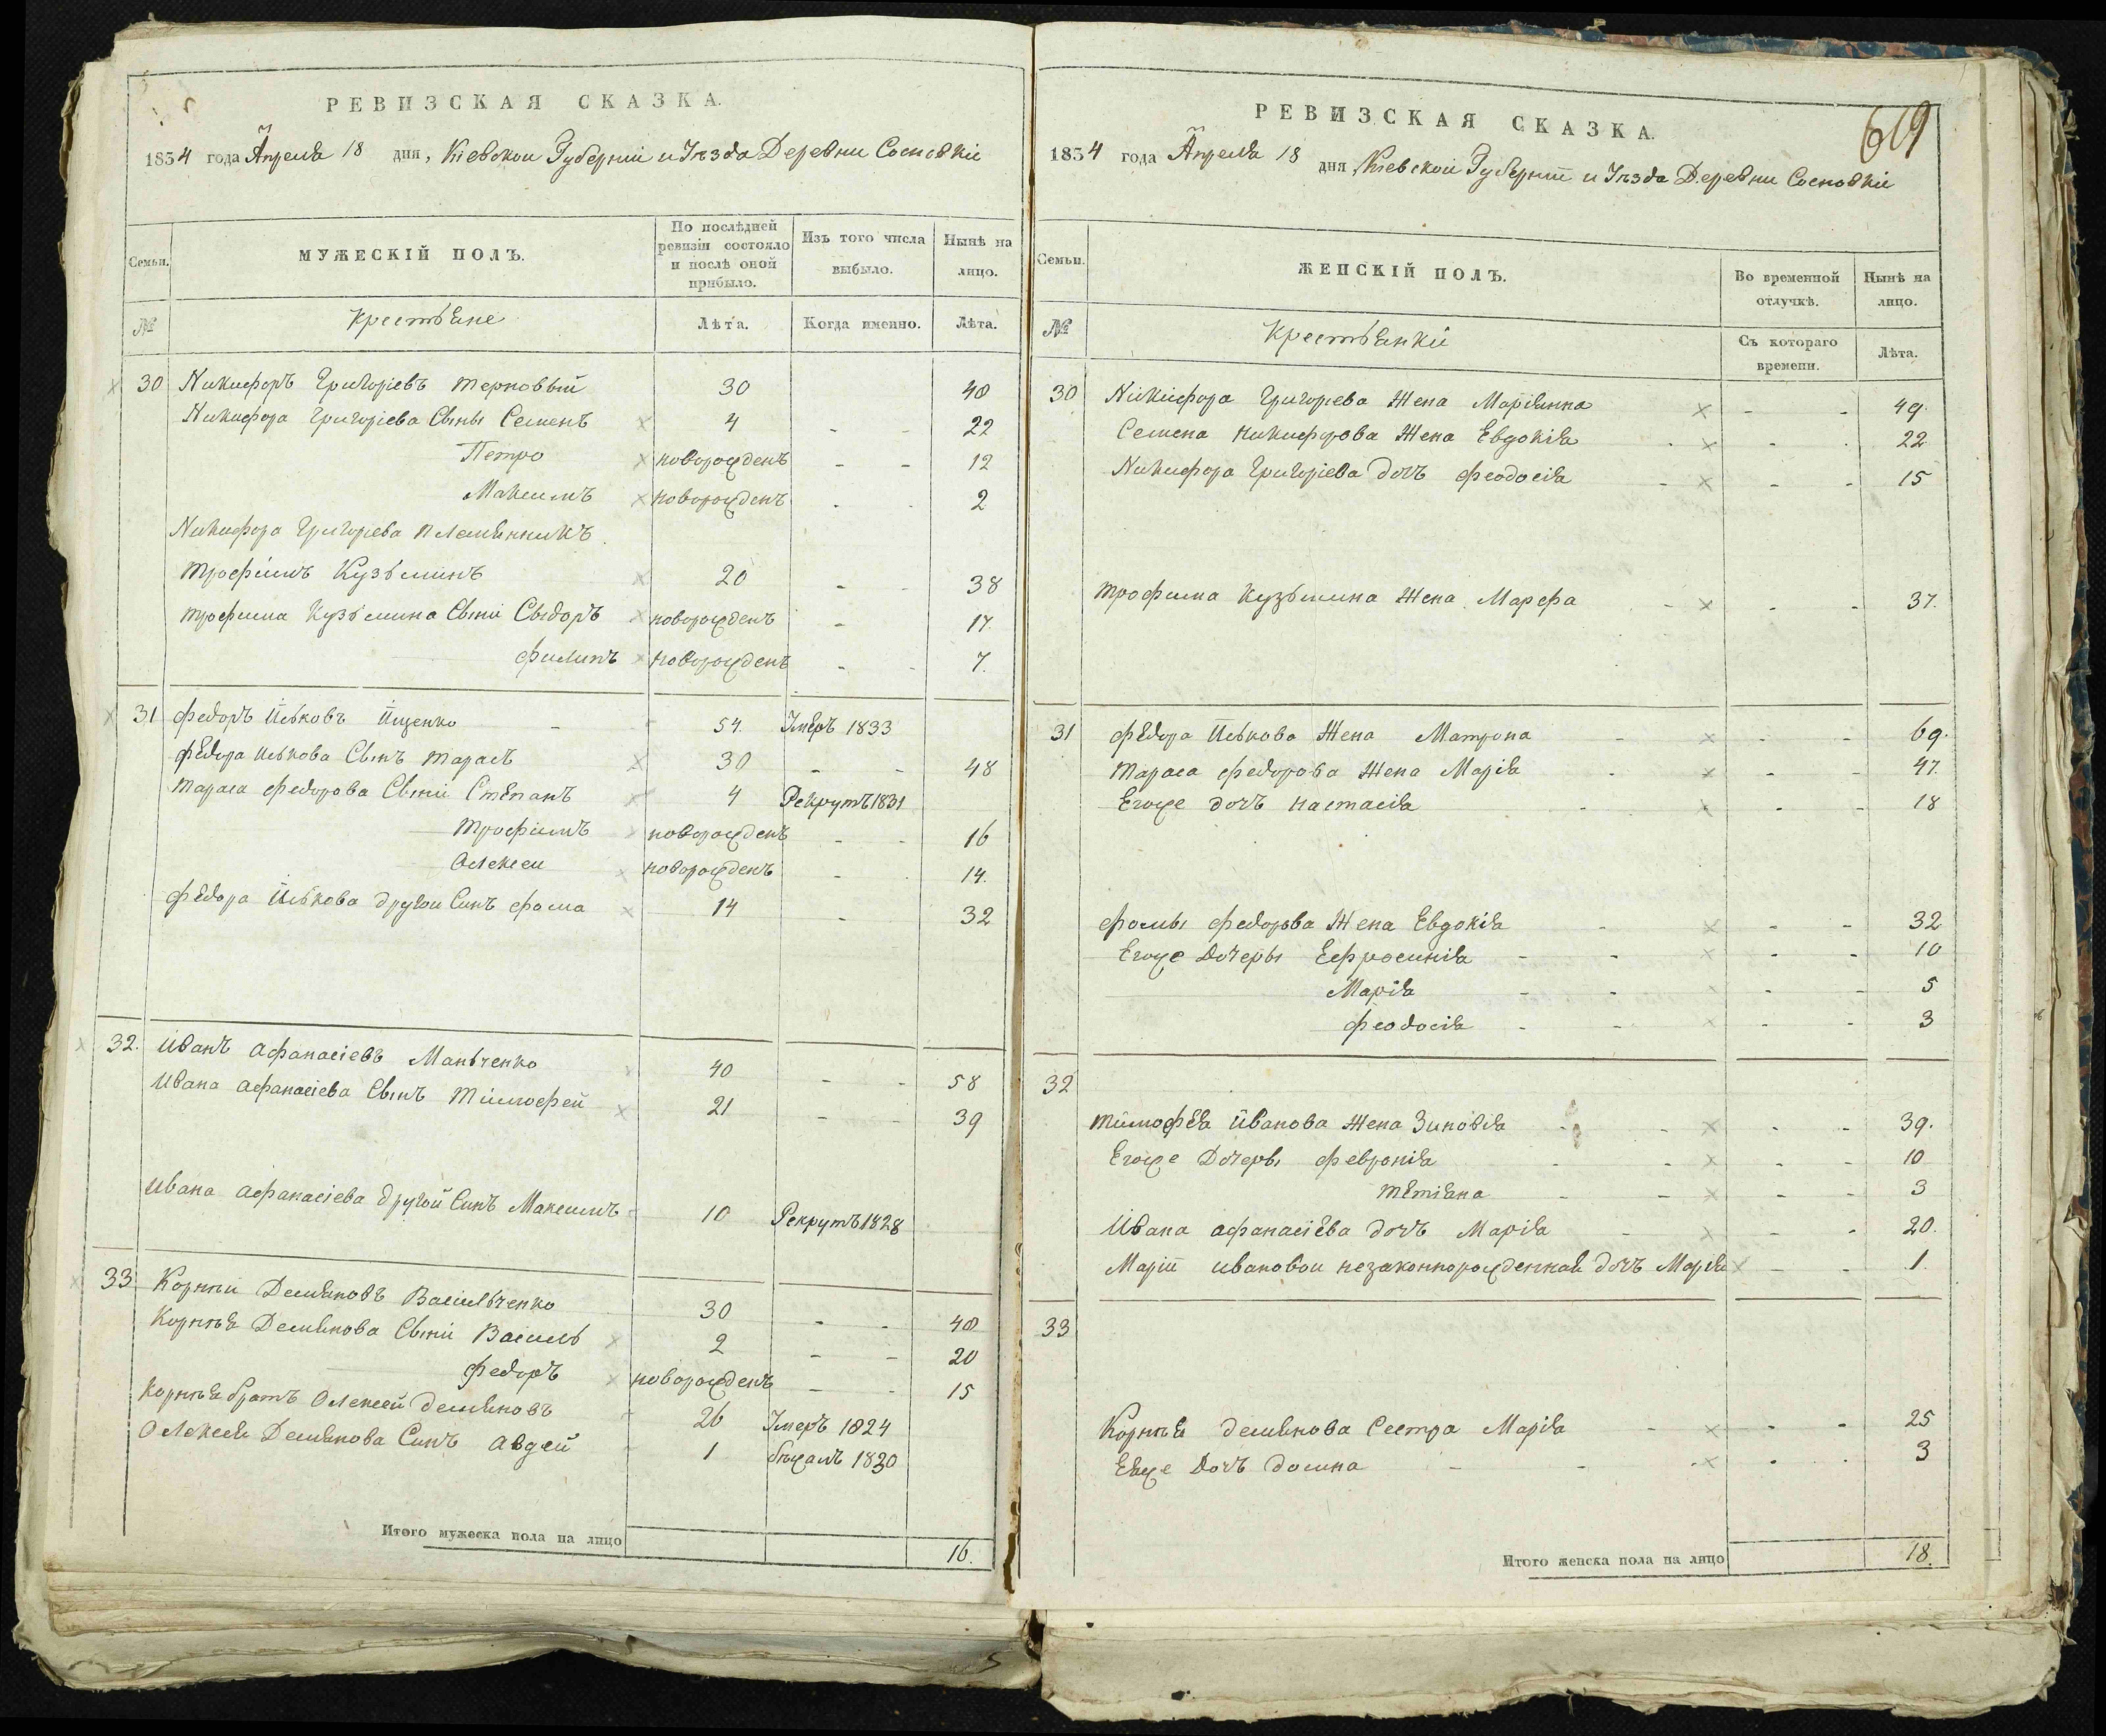 РЕВИЗСКАЯ СКАЗКА.
1834 года Апреля 18 дня, Кіевской Губерніи и Уѣзда Деревни Сосновки
Семьи.
МУЖЕСКІЙ ПОЛЪ.
По послѣдней ревизіи состояло и послѣ оной прибыло.
Изъ того числа выбыло.
Нынѣ на лицо.
№
Крестьяне
Лѣта.
Когда именно.
Лѣта.
30 Никифоръ Григоріевъ Терновый 30 48
Никифора Григоріева Сыны Семенъ 4 - - 22
Петро новорожденъ - - 12
Максимъ новорожденъ - - 2
Никифора Григорьева племянникъ
Трофимъ Кузьминъ 20 - - 38
Трофима Кузьмина Сыны Сыдоръ новорожденъ - 17.
Филипъ новорожденъ - - 7.
31 Федоръ Иськовъ Ищенко - 54. Умеръ 1833
Федора Иськова Сынъ Тарасъ 30 - - 48
Тараса Федорова Сыны Степанъ 4 Рекрутъ 1831
Трофимъ новорожденъ - - 16
Олексей новорожденъ - - 14.
Федора Иськова другой Синъ Фома 14 - 32
32. Иванъ Афанасіевъ Маньченко 40 - - 58
Ивана Афанасіева Сынъ Тимофей 21 - - 39
Ивана Афанасіева другой Синъ Максимъ - 10 Рекрутъ 1828
33 Корнѣй Демяновъ Васильченко 30 - - 48
Корнѣя Демянова Сыны Василь 2 - - 20
Федоръ новорожденъ - - 15
Корнѣя братъ Олексей Демяновъ - 26 Умеръ 1824
Олексея Демянова Синъ Авдей - 1 бѣжалъ 1830
Итого мужеска пола на лицо 16.
РЕВИЗСКАЯ СКАЗКА.
619
1834 года Апреля 18 дня, Кіевской Губерніи и Уѣзда Деревни Сосновки
Семьи.
ЖЕНСКІЙ ПОЛЪ.
Во временной отлучкѣ.
Нынѣ на лицо.
№
Крестьянки
Съ котораго времени.
Лѣта.
30 Никифора Григорьева Жена Маріянна - - 49.
Семена Никифрова Жена Евдокія - - 22
Никифора Григоріева дочъ Феодосія - - - 15
Трофима Кузьмина Жена Марфа - - - 37.
31 Федора Иськова Жена Матрона - - - 69.
Тараса Федорова Жена Марія - - - 47.
Егоже дочъ Настасія - - - 18
Фомы Федорова Жена Евдокія - - - 32
Егоже Дочеры Ефросинія - - - - 10
Марія - - - - 5
Феодосія - - - - 3
32
Тимофея Иванова Жена Зиновія - - - - 39.
Егоже Дочеры Февронія - - - - 10
Тетіяна - - - - 3
Ивана Афанасіева дочъ Марія - - - 20.
Маріи Ивановои незаконнорожденная дочъ Марія - - 1.
33
Корнѣя Демянова Сестра Марія - - - 25
Еяже Дочъ Домна - - - - 3
Итого женска пола на лицо 18.